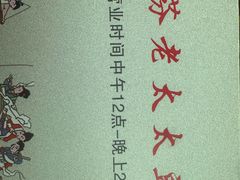 苏老太太
营业时间中午12点-晚上2